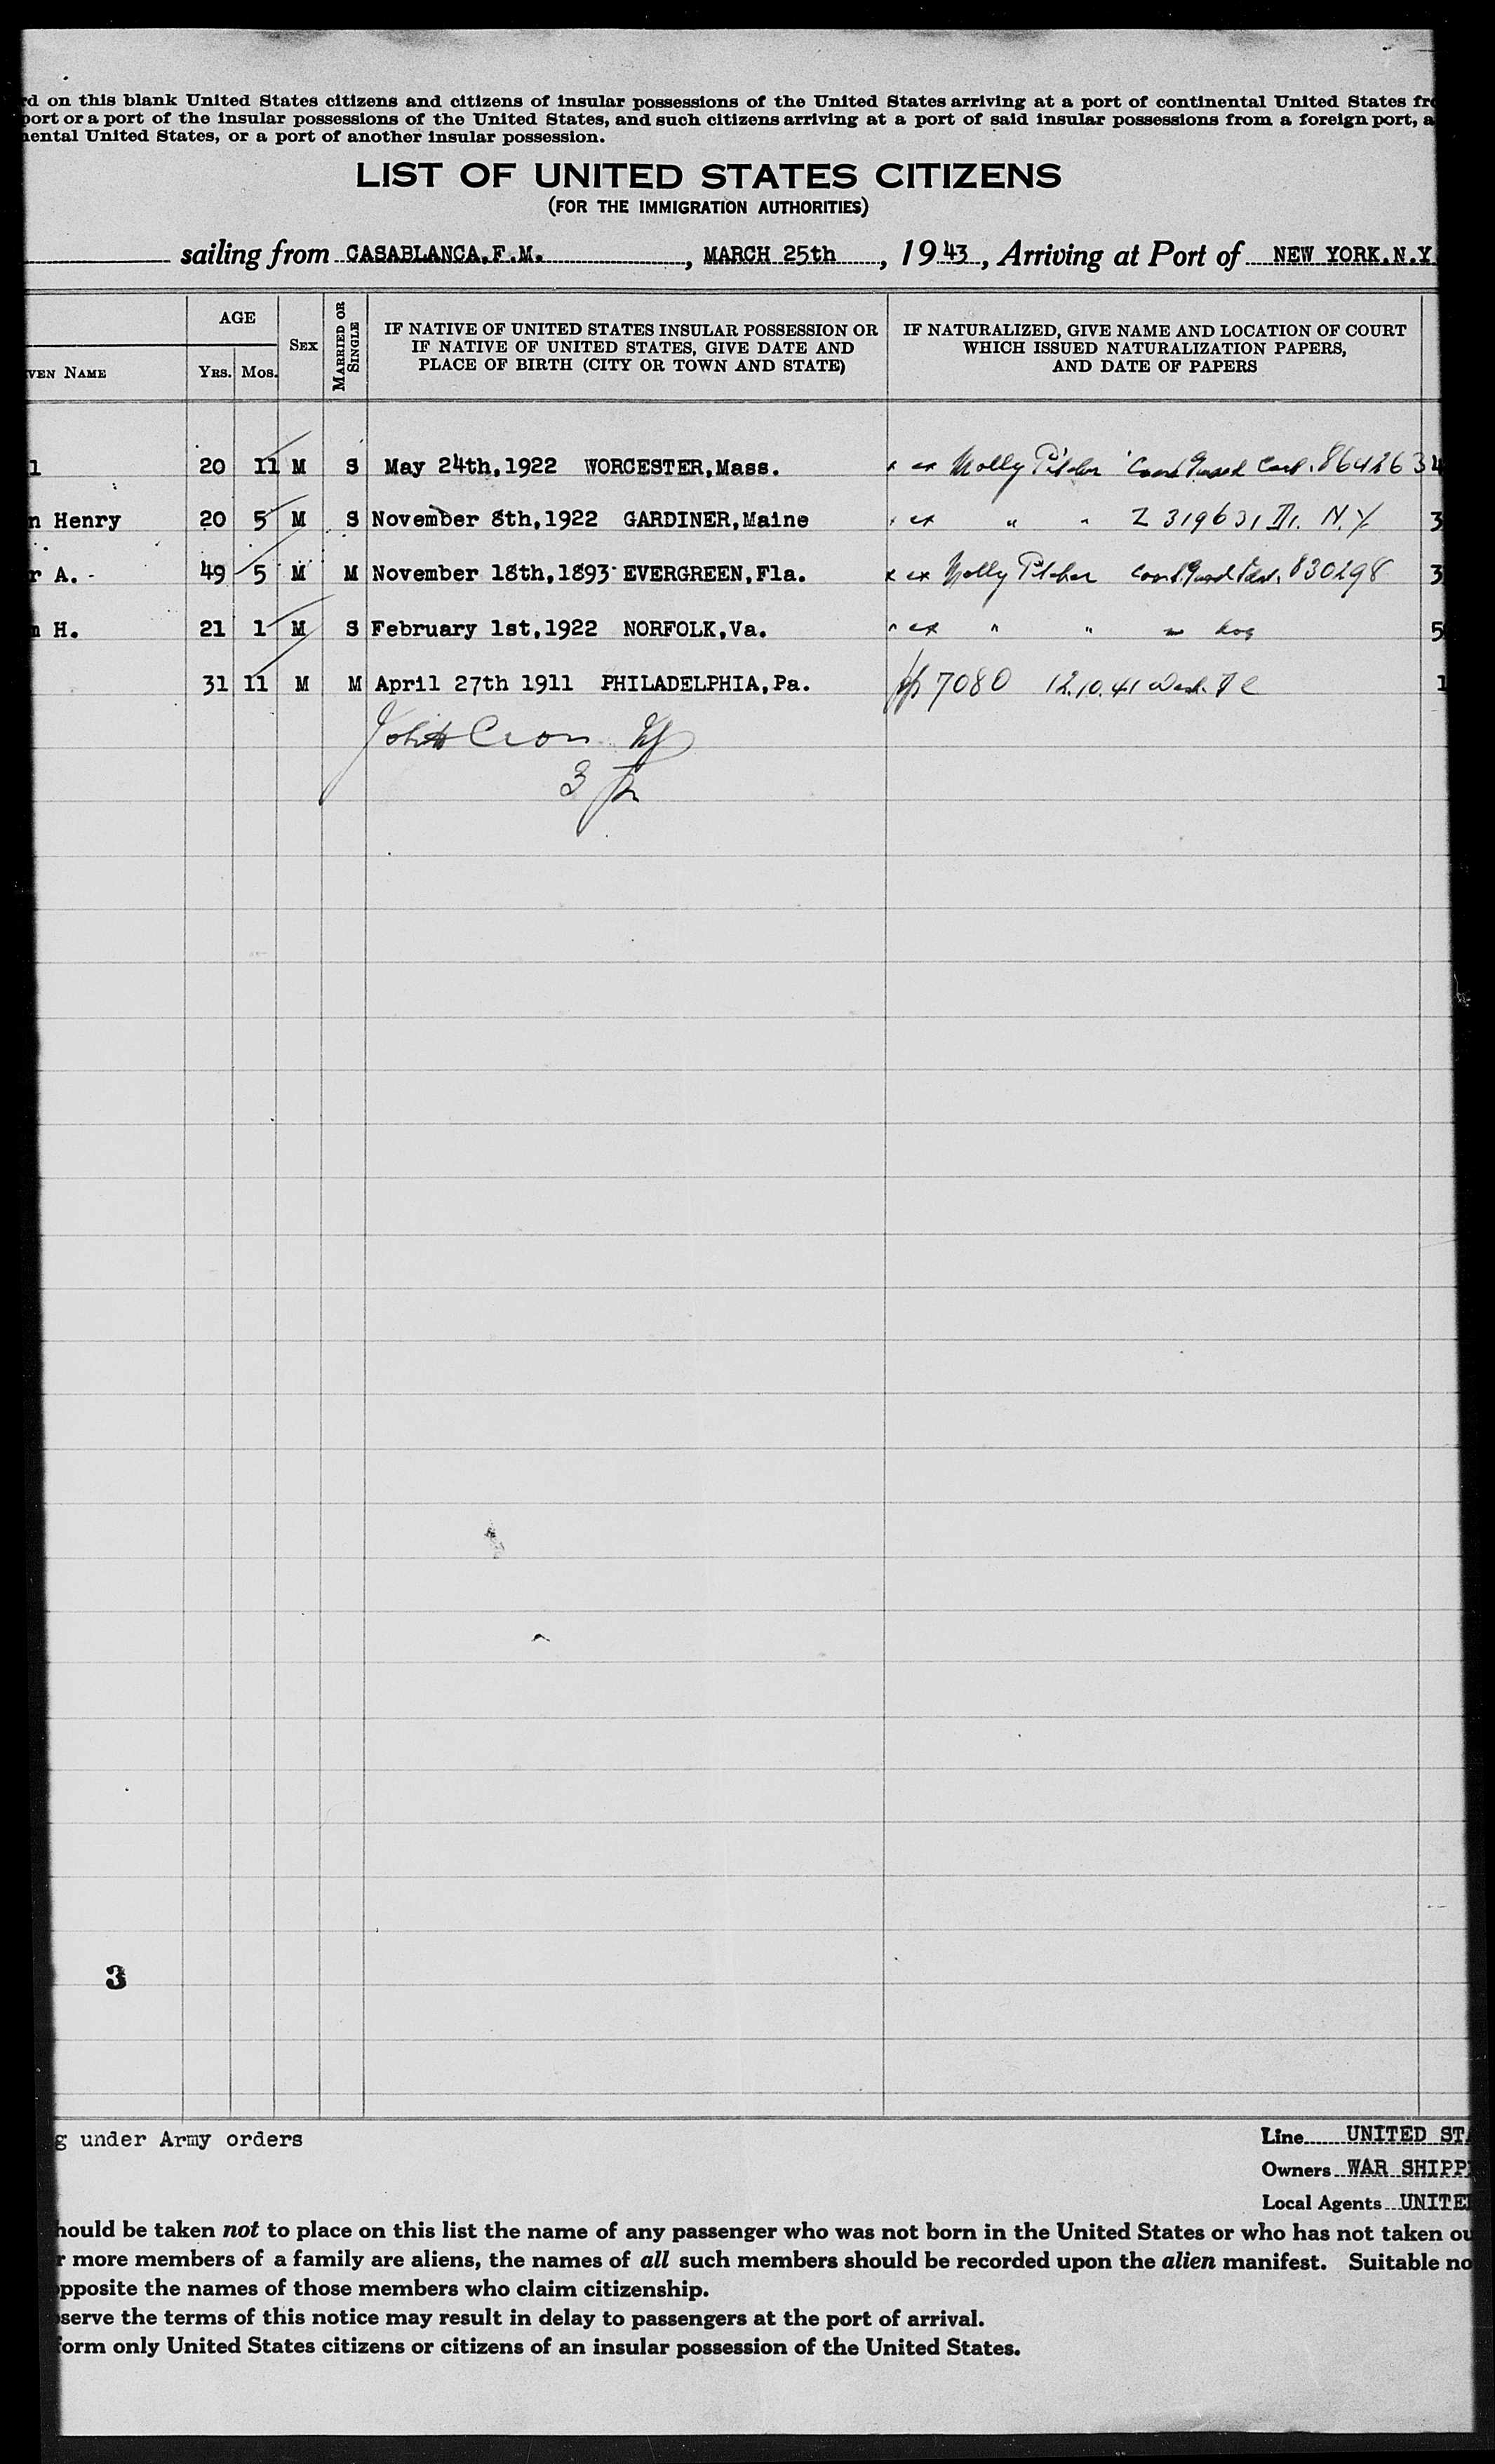 d on this blank United States citizens and citizens of insular possessions of the United States arriving at a port of continental United States fr
port or a port of the insular possessions of the United States, and such citizens arriving at a port of said insular possessions from a foreign port, a
nental United States, or a port of another insular possession.
LIST OF UNITED STATES CITIZENS
(FOR THE IMMIGRATION AUTHORITIES)
sailing from CASABLANCA, F.M., MARCH 25th, 1943, Arriving at Port of NEW YORK, N.Y
VEN NAME
AGE
YRS. MOS.
SEX
MARRIED OR SINGLE
IF NATIVE OF UNITED STATES INSULAR POSSESSION OR
IF NATIVE OF UNITED STATES, GIVE DATE AND
PLACE OF BIRTH (CITY OR TOWN AND STATE)
IF NATURALIZED, GIVE NAME AND LOCATION OF COURT
WHICH ISSUED NATURALIZATION PAPERS,
AND DATE OF PAPERS
l 20 11 M S May 24th, 1922 WORCESTER, Mass. ex Molly Pitcher Coast Guard 864263 4
n Henry 20 5 M S November 8th, 1922 GARDINER, Maine ex " " Z 319631 N.Y. 3
r A. - 49 5 M M November 18th, 1893 EVERGREEN, Fla. x ex Molly Pitcher Coast Guard 830298 3
n H. 21 1 M S February 1st, 1922 NORFOLK, Va. ex " " 5
31 11 M M April 27th 1911 PHILADELPHIA, Pa. 7080 12.10.41 Wash. 1
3
3
g under Army orders
Line UNITED STA
Owners WAR SHIPPI
Local Agents UNITE
hould be taken not to place on this list the name of any passenger who was not born in the United States or who has not taken ou
r more members of a family are aliens, the names of all such members should be recorded upon the alien manifest. Suitable no
pposite the names of those members who claim citizenship.
serve the terms of this notice may result in delay to passengers at the port of arrival.
form only United States citizens or citizens of an insular possession of the United States.